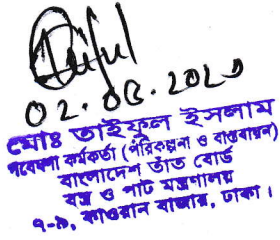 ০২.০৫.২০২৩
মোঃ তাইফুল ইসলাম
গবেষণা কর্মকর্তা (পরিকল্পনা ও বাস্তবায়ন)
বাংলাদেশ তাঁত বোর্ড
বস্ত্র ও পাট মন্ত্রণালয়
৭-৯, কাওরান বাজার, ঢাকা।